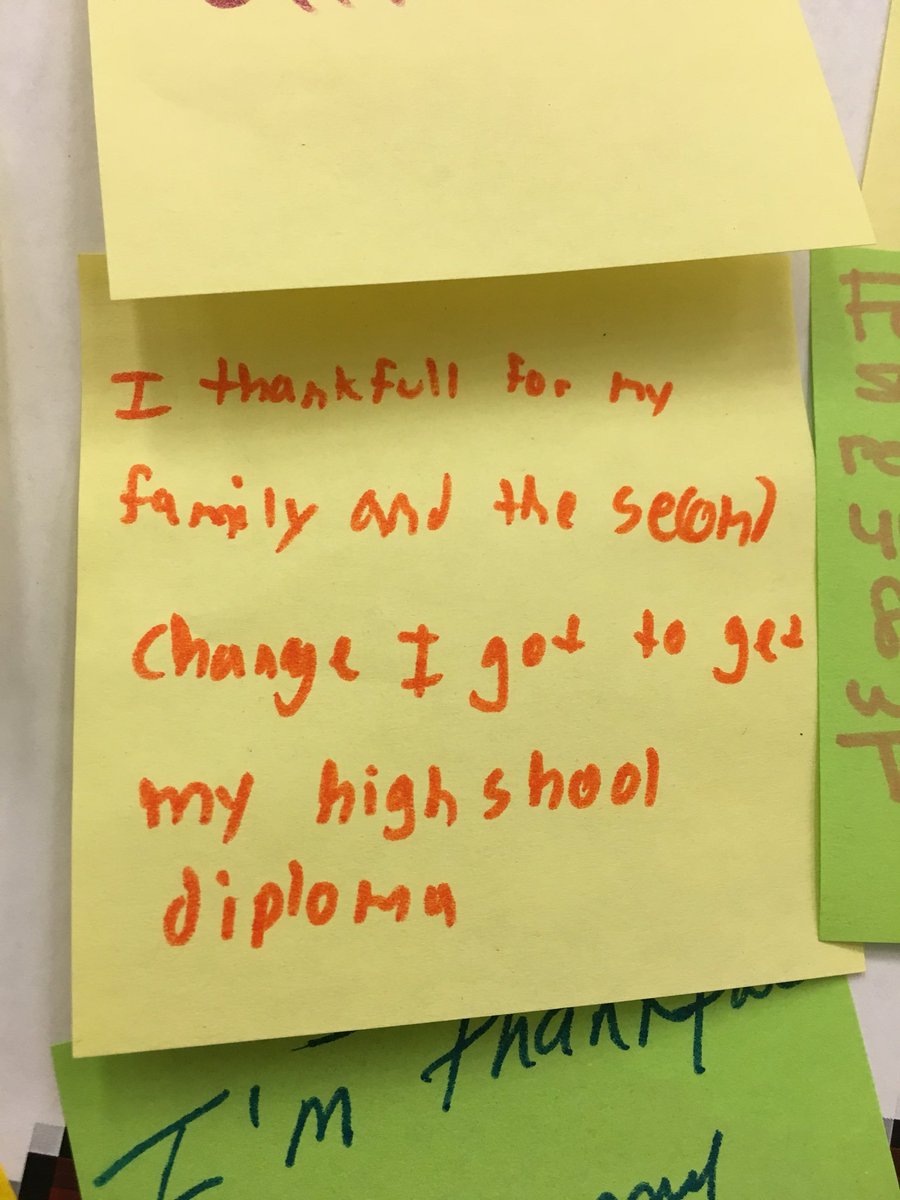 I thankfull for my
family and the second
change I got to get
my high shool
diploma
I'm thankful